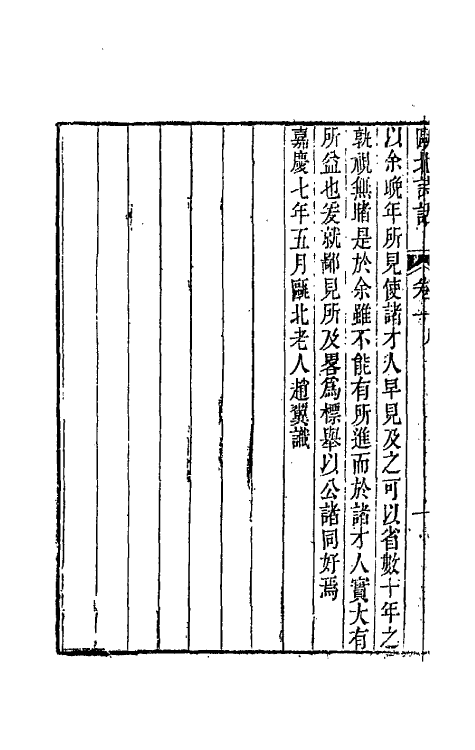 甌北詩話
以余晚年所見使諸才人早見及之可以省數十年之
熟視無睹是於余雖不能有所進而於諸才人實大有
所益也爰就鄙見所及畧爲標舉以公諸同好焉
嘉慶七年五月甌北老人趙翼識